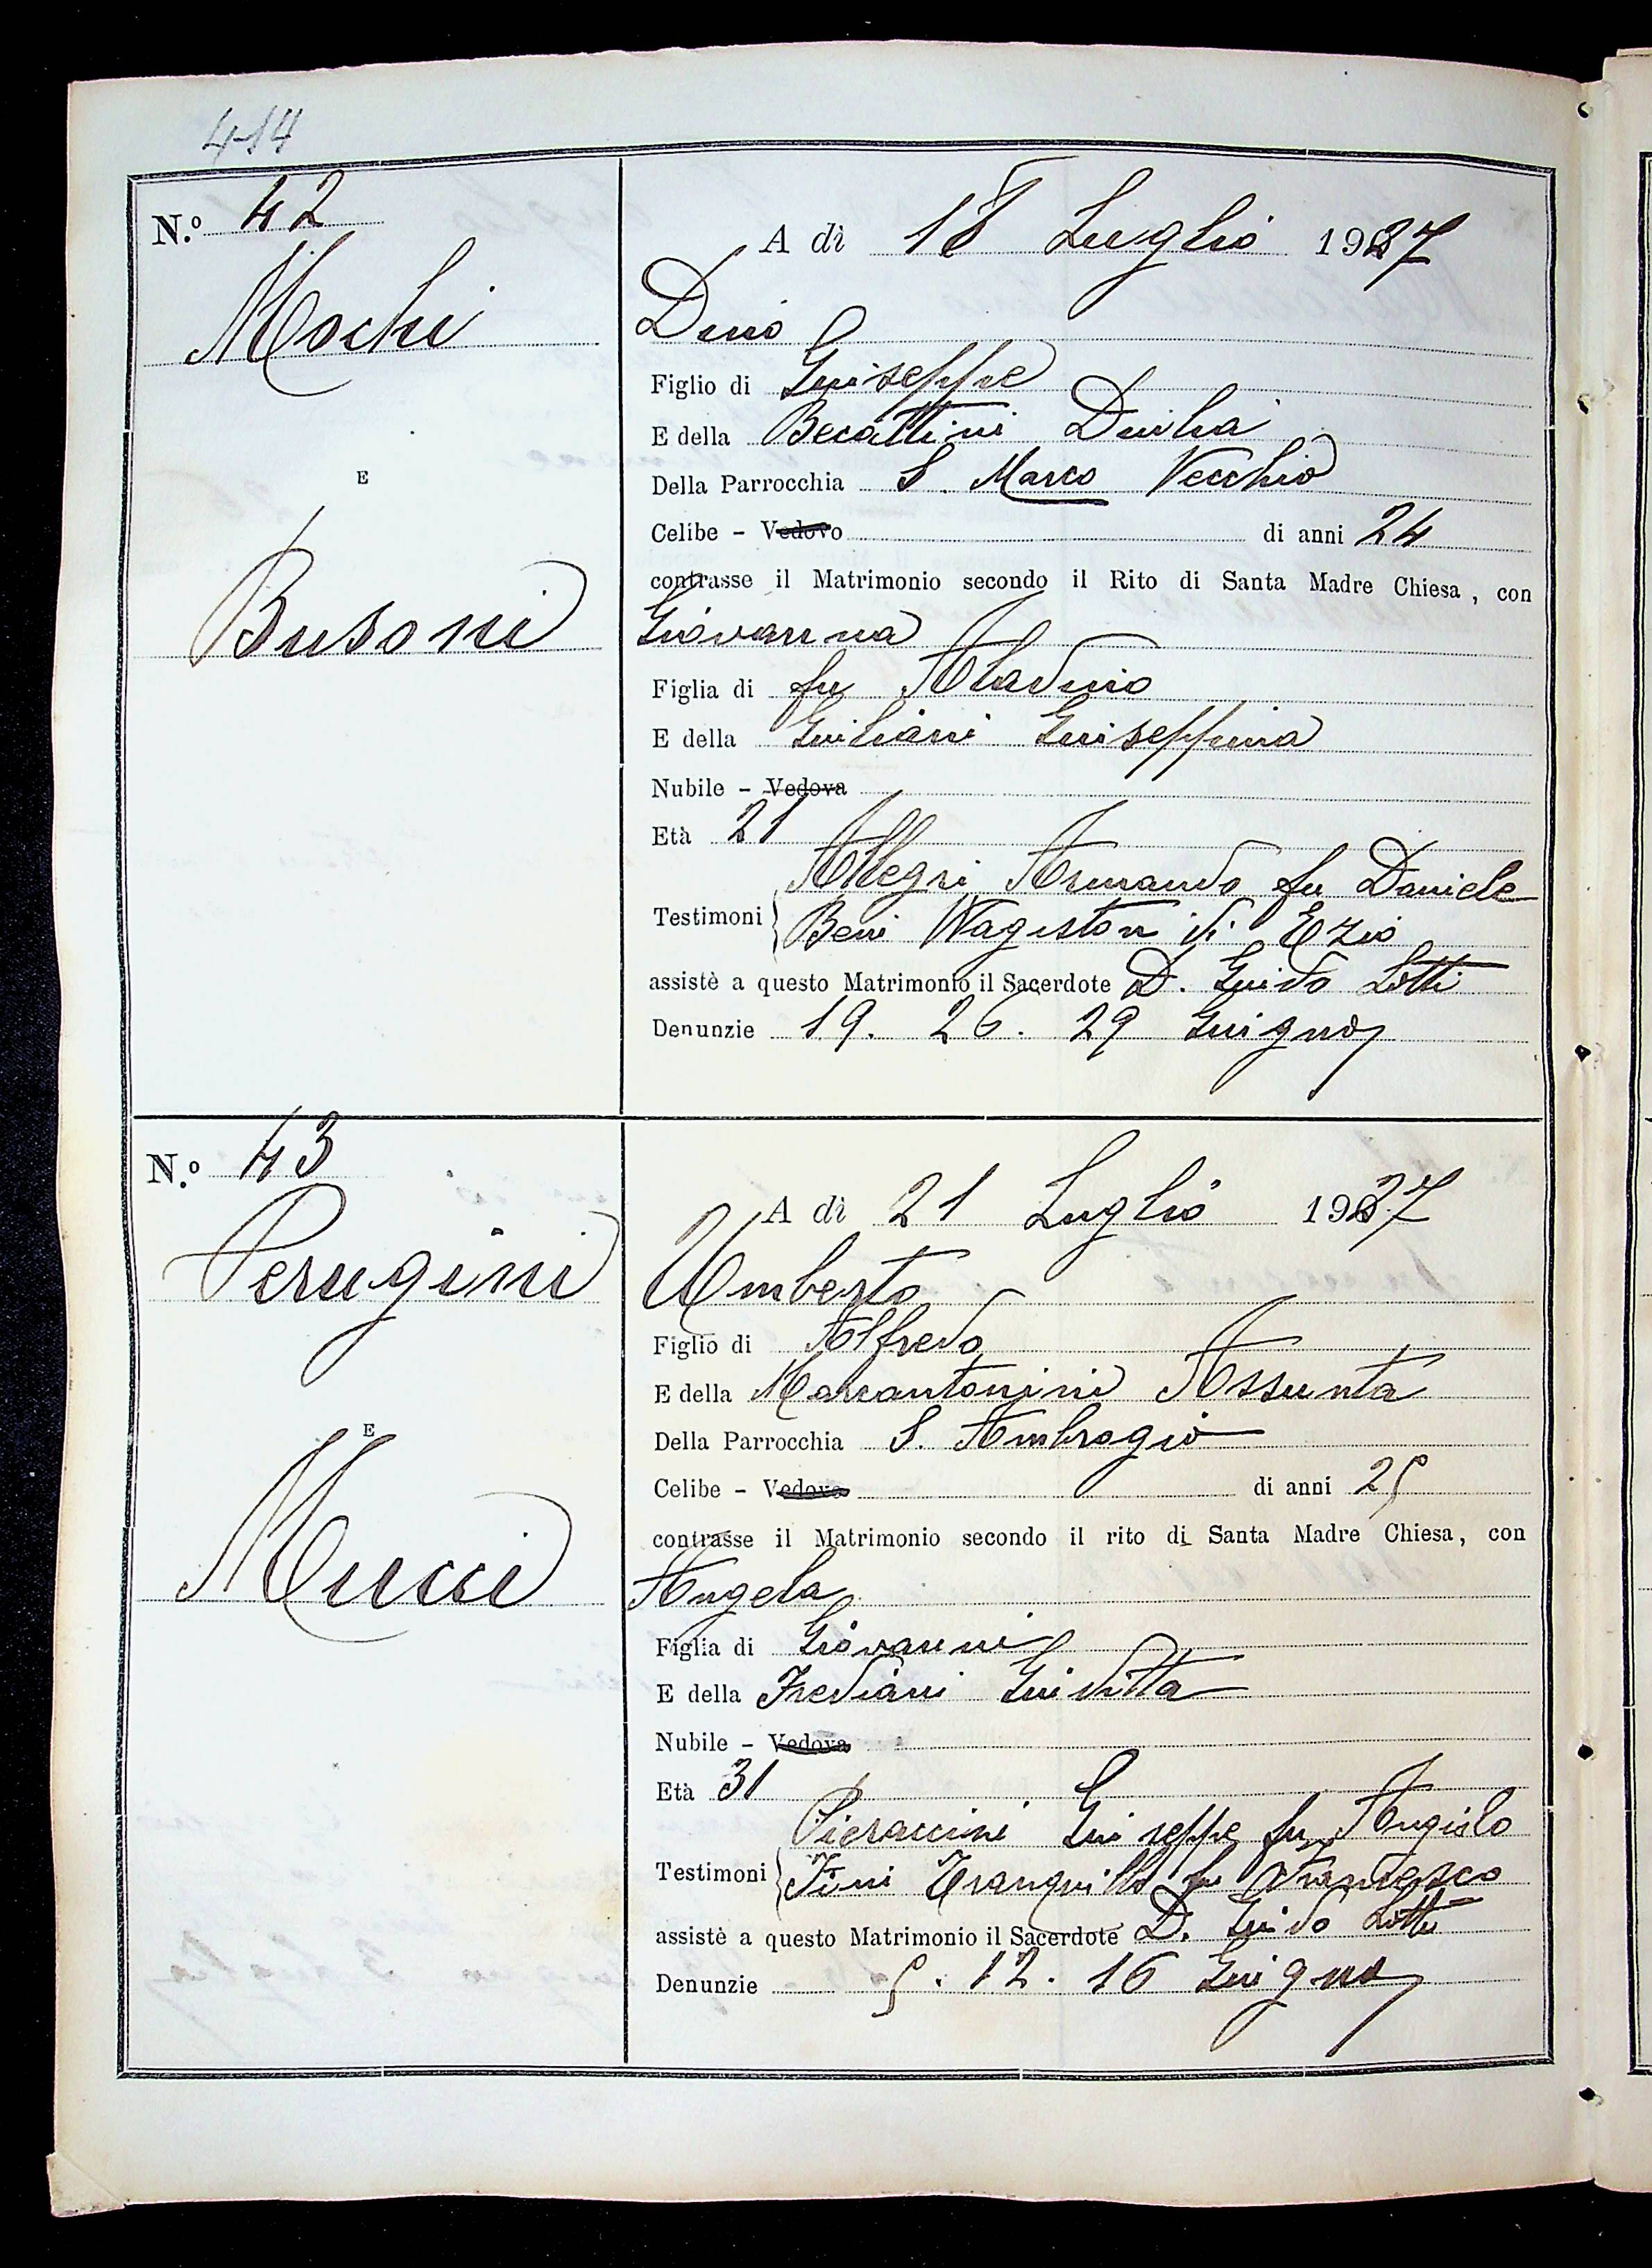 414
N.º 42
A dì 18 Luglio 1927
Mochi
Dino
Figlio di Giuseppe
E della Becattini Duilia
Della Parrocchia S. Marco Vecchio
E
Celibe - Vedovo di anni 24
contrasse il Matrimonio secondo il Rito di Santa Madre Chiesa, con
Busoni
Giovanna
Figlia di fu Aladino
E della Giuliani Giuseppina
Nubile - Vedova
Età 21
Allegri Armando fu Daniele
Testimoni
Beni Wagiston di Ezio
assistè a questo Matrimonio il Sacerdote D. Guido Lotti
Denunzie 19. 26. 29 Giugno
N.º 43
A dì 21 Luglio 1927
Perugini
Umberto
Figlio di Alfredo
E della Marcantonini Assunta
E
Della Parrocchia S. Ambrogio
Celibe - Vedovo di anni 25
contrasse il Matrimonio secondo il rito di Santa Madre Chiesa, con
Mucci
Angela
Figlia di Giovanni
E della Frediani Giuditta
Nubile - Vedova
Età 31
Pieraccini Giuseppe fu Angiolo
Testimoni
Fini Tranquillo fu Francesco
assistè a questo Matrimonio il Sacerdote D. Guido Lotti
Denunzie 5. 12. 16 Giugno